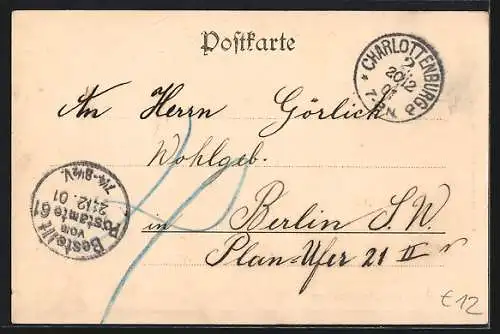 Postkarte
* CHARLOTTENBURG 2 P
20 12
01
7-8N.
An Herrn Görlich
Wohlgeb.
in Berlin S.W.
Plan-Ufer 21 II
Bestellt
vom
Postamte 61
21 12. 01
7¼-8½V.
€12